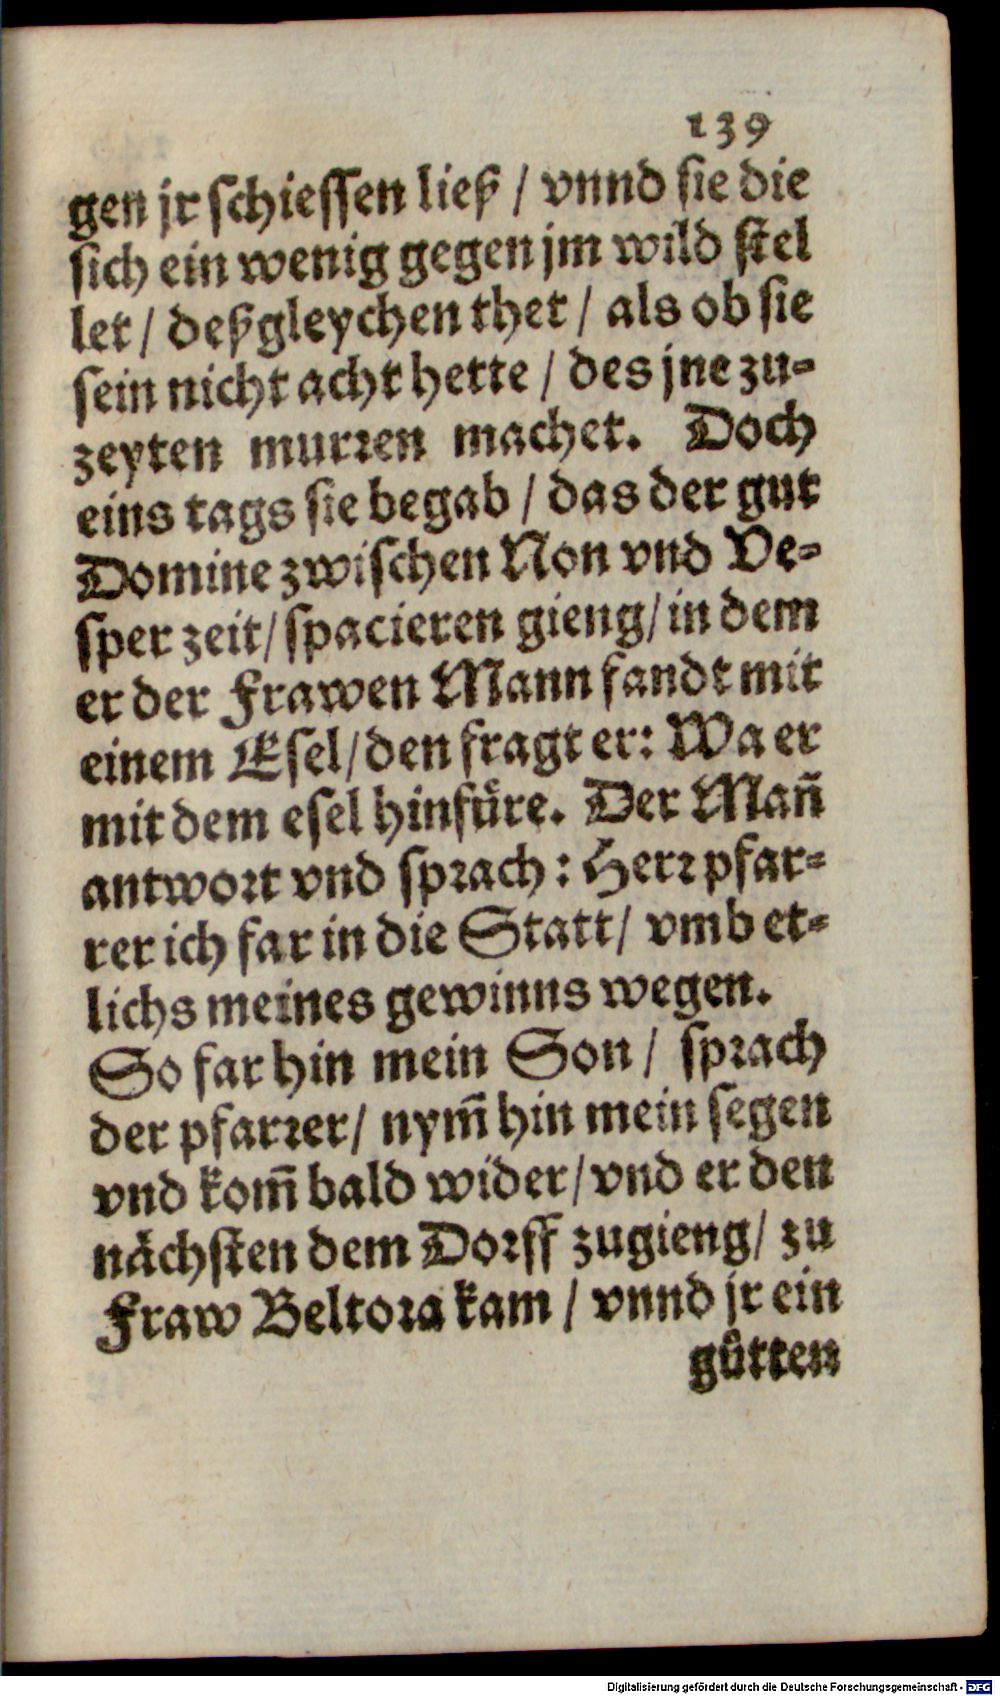 139
gen jr schiessen ließ / vnnd sie die
sich ein wenig gegen jm wild stel
let / deßgleychen thet / als ob sie
sein nicht acht hette / des jne zu-
zeyten murren machet. Doch
eins tags sie begab / das der gut
Domine zwischen Non vnd Ve-
sper zeit / spacieren gieng / in dem
er der Frawen Mann fandt mit
einem Esel / den fragt er: Wa er
mit dem esel hinfüre. Der Mañ
antwort vnd sprach: Herr pfar-
rer ich far in die Statt / vmb et-
lichs meines gewinns wegen.
So far hin mein Son / sprach
der pfarrer / nym̃ hin mein segen
vnd kom̃ bald wider / vnd er den
nächsten dem Dorff zugieng / zu
Fraw Beltora kam / vnnd jr ein
gůtten
Digitalisierung gefördert durch die Deutsche Forschungsgemeinschaft - DFG